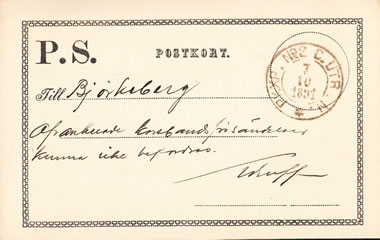 P.S.
POSTKORT.
PKXP. Nº 2 C. UTR. N.
7
10
1881
Till Björkeberg
Ofrankerade korsbandsförsändelser
kunna icke befordras.